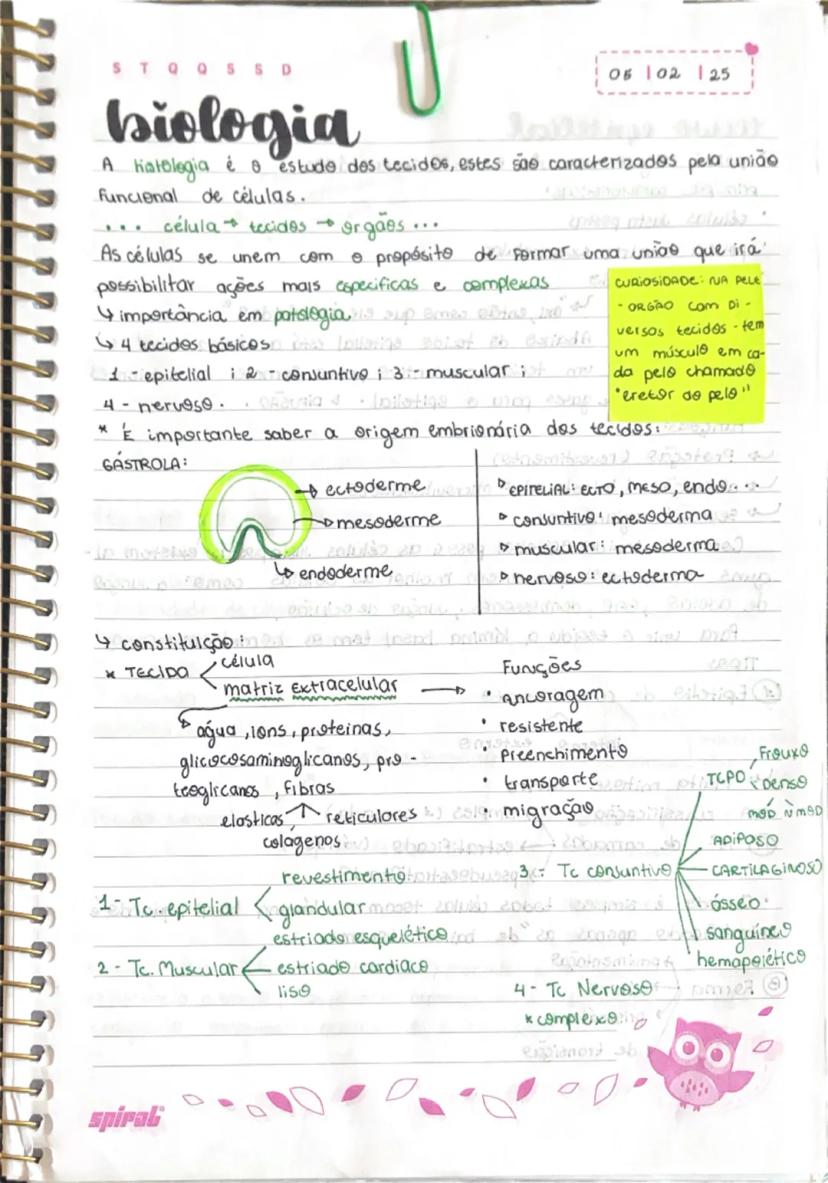 S T Q Q S S D
05 | 02 | 25
biologia
A histologia é o estudo dos tecidos, estes são caracterizados pela união
funcional de células.
... célula → tecidos → orgãos ...
As células se unem com o propósito de formar uma união que irá
possibilitar ações mais especificas e complexas
↳ importância em patologia
↳ 4 tecidos básicos
1 - epitelial ; 2 - conjuntivo ; 3 - muscular ;
4 - nervoso.
CURIOSIDADE: NA PELE
- ORGÃO COM DI -
VERSOS TECIDOS - tem
um músculo em ca-
da pelo chamado
"eretor do pelo"
* É importante saber a origem embrionária dos tecidos:
GÁSTROLA:
→ ectoderme
→ mesoderme
↳ endoderme
▹ EPITELIAL: ECTO, MESO, endo...
▹ conjuntivo: mesoderma
▹ muscular: mesoderma
▹ nervoso: ectoderma
↳ constituição:
* TECIDO
célula
matriz extracelular →
água, ions, proteinas,
glicocosaminoglicanos, pro -
teoglicanos, fibras
elasticas reticulores
colágenos
Funções
• ancoragem
• resistente
• preenchimento
• transporte
• migração
1 - Tc. epitelial
revestimento
glandular
2 - Tc. Muscular
estriado esquelético
estriado cardiaco
liso
3 - Tc conjuntivo
TCPD
Frouxo
Denso
moD ÑmoD
ADIPOSO
CARTILAGINOSO
ósseo
sanguíneo
hemapoiético
4 - Tc Nervoso
* complexo
spiral